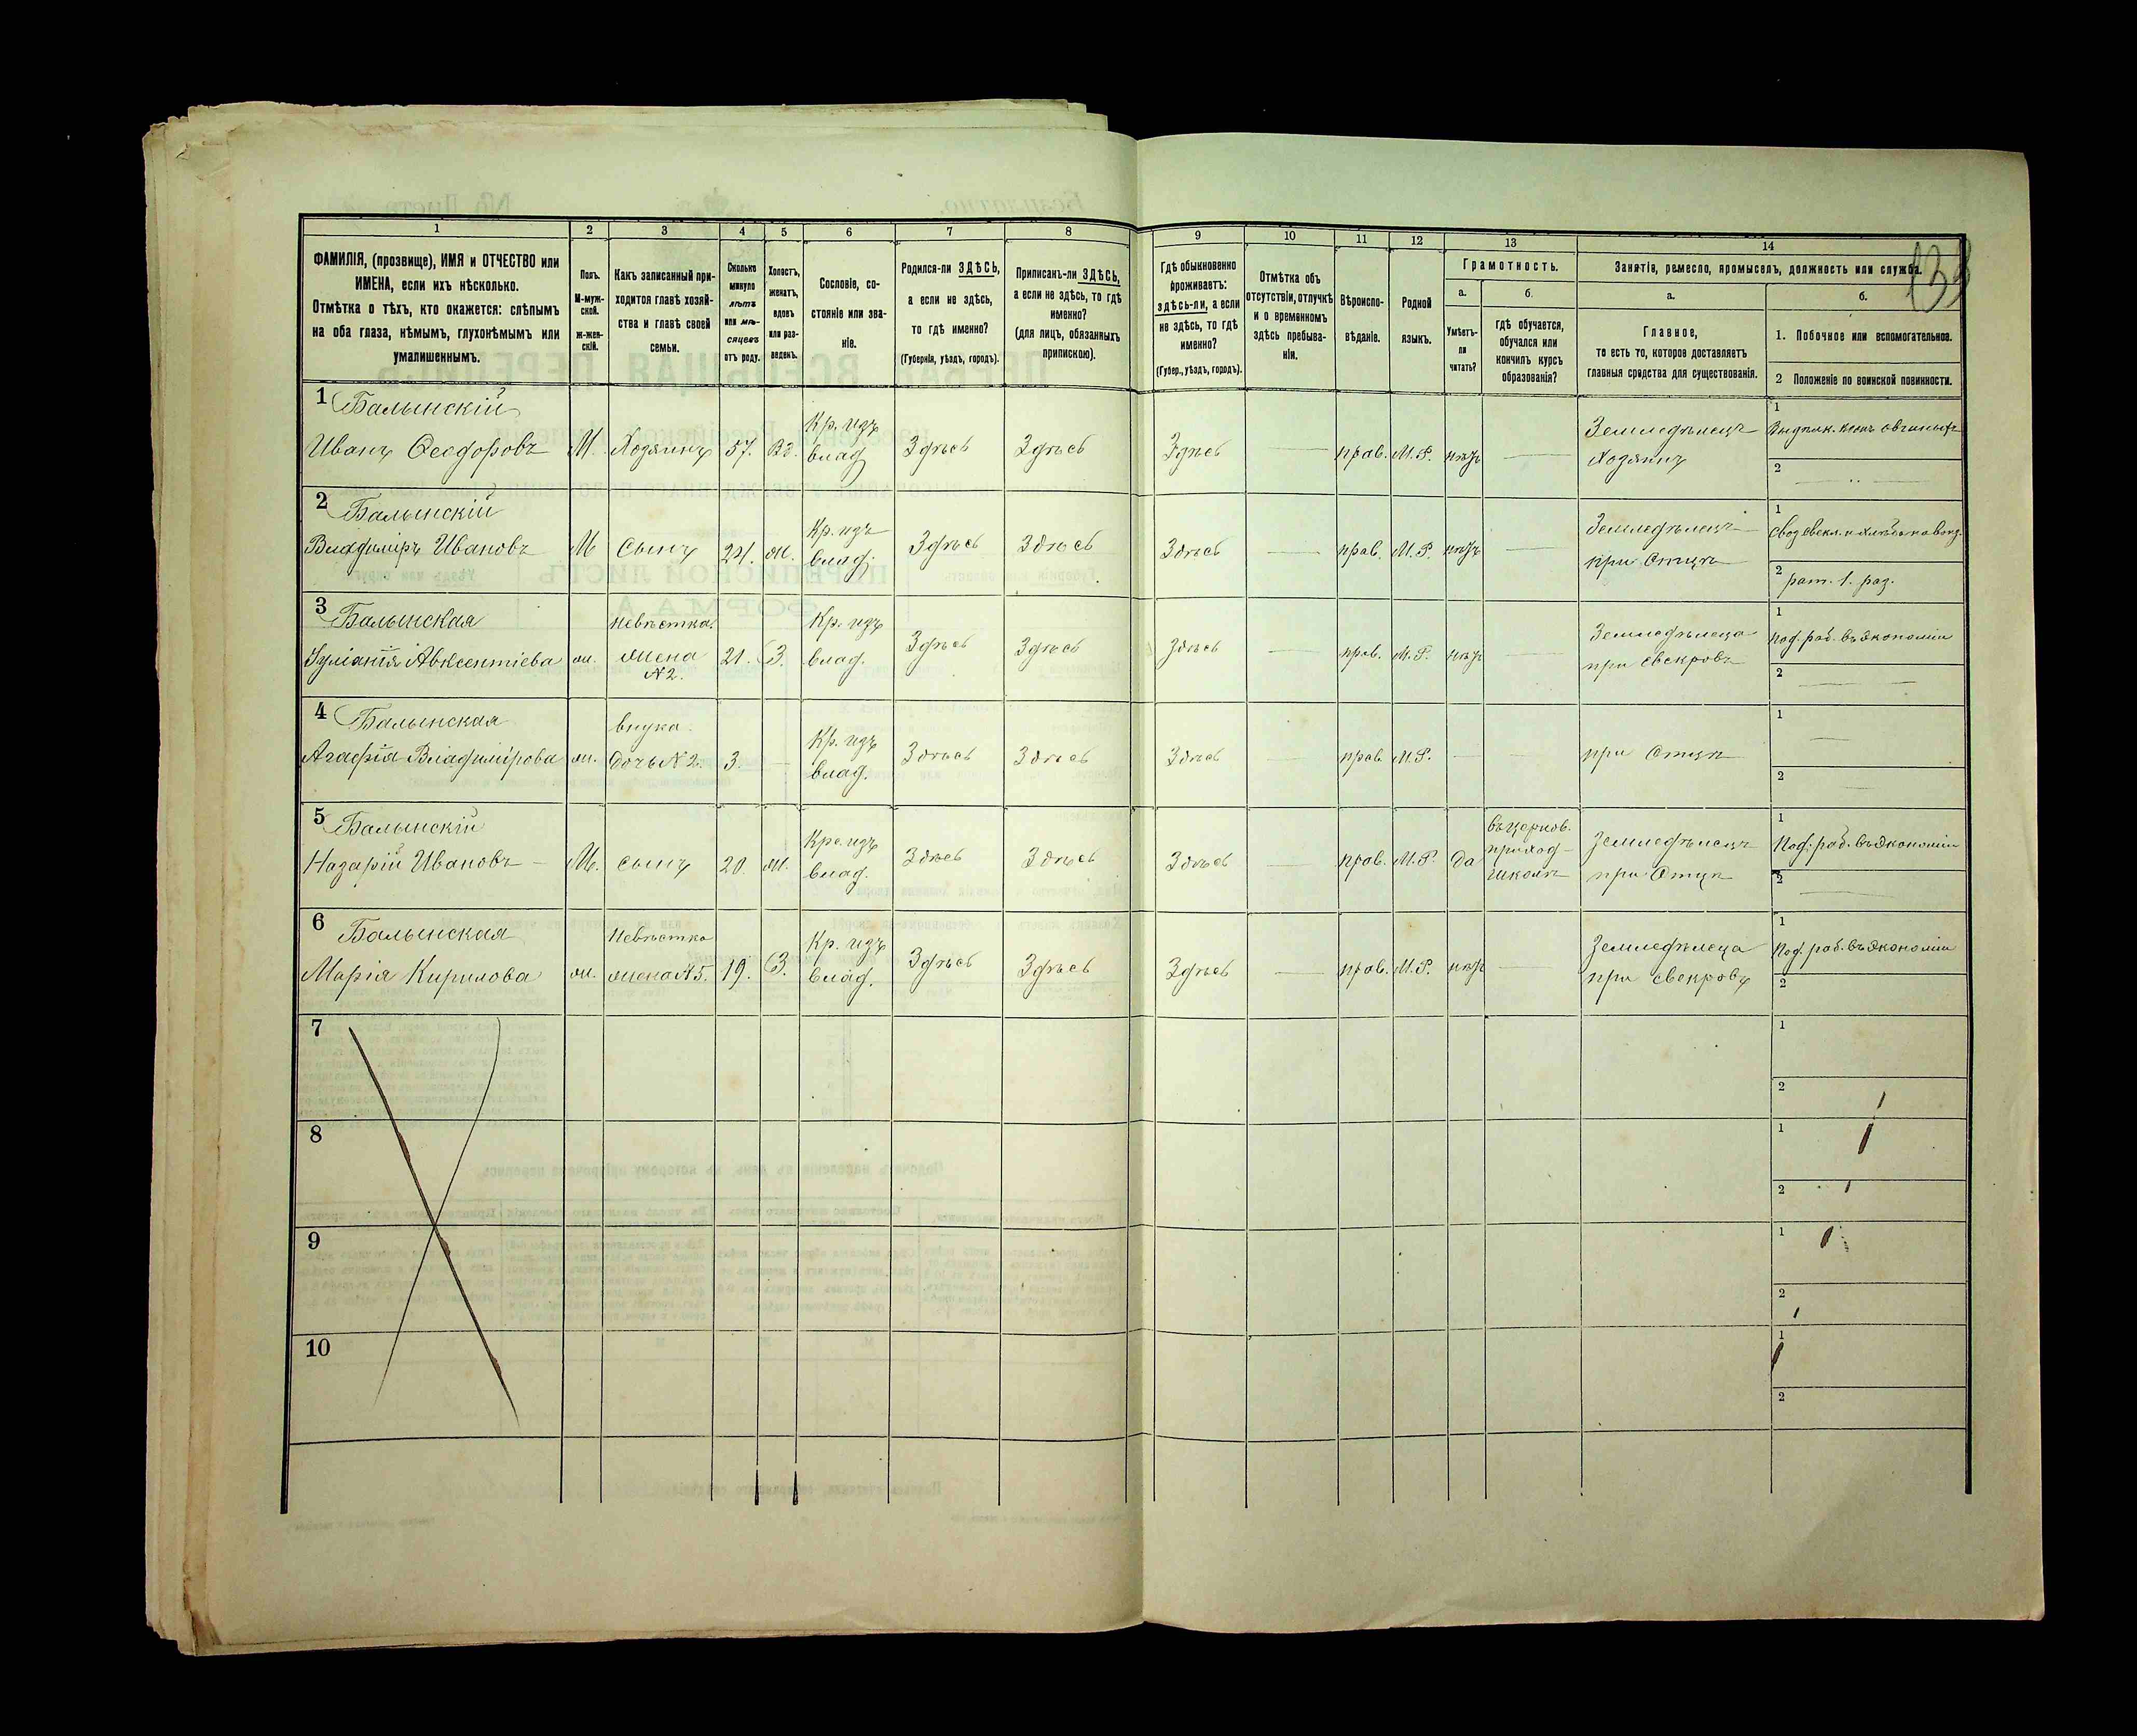 1 2 3 4 5 6 7 8 9 10 11 12 13 14
139
ФАМИЛІЯ, (прозвище), ИМЯ и ОТЧЕСТВО или
ИМЕНА, если ихъ нѣсколько.
Отмѣтка о тѣхъ, кто окажется: слѣпымъ
на оба глаза, нѣмымъ, глухонѣмымъ или
умалишеннымъ.
Полъ.
М-муж-
ской.
ж-жен-
скій.
Какъ записанный при-
ходится главѣ хозяй-
ства и главѣ своей
семьи.
Сколько
минуло
лѣтъ
или мѣ-
сяцевъ
отъ роду.
Холостъ,
женатъ,
вдовъ
или раз-
веденъ.
Сословіе, со-
стояніе или зва-
ніе.
Родился-ли ЗДѢСЬ,
а если не здѣсь,
то гдѣ именно?
(Губернія, уѣздъ, городъ).
Приписанъ-ли ЗДѢСЬ,
а если не здѣсь, то гдѣ
именно?
(для лицъ, обязанныхъ
припискою).
Гдѣ обыкновенно
проживаетъ:
здѣсь-ли, а если
не здѣсь, то гдѣ
именно?
(Губер., уѣздъ, городъ).
Отмѣтка объ
отсутствіи, отлучкѣ
и о временномъ
здѣсь пребыва-
ніи.
Вѣроиспо-
вѣданіе.
Родной
языкъ.
Грамотность.
а.
Умѣетъ-
ли
читать?
б.
гдѣ обучается,
обучался или
кончилъ курсъ
образованія?
Занятія, ремесло, промыселъ, должность или служба.
а.
Главное,
то есть то, которое доставляетъ
главныя средства для существованія.
б.
1. Побочное или вспомогательное.
2 Положеніе по воинской повинности.
1 Балынскій
Иванъ Ѳеодоровъ
М.
Хозяинъ
57.
Вд.
Кр. изъ
влад
Здѣсь
Здѣсь
Здѣсь
прав.
М.Р.
нѣтъ
Земледѣлецъ
Хозяинъ
1
2
2 Балынскій
Владиміръ Ивановъ
М
Сынъ
24.
ж.
Кр. изъ
влад.
Здѣсь
Здѣсь
Здѣсь
прав.
М.Р.
нѣтъ
Земледѣлецъ
при Отцѣ
1
2 рат. 1. раз.
3 Балынская
Іуліанія Авксентіева
ж.
невѣстка.
жена
№2.
21.
З.
Кр. изъ
влад.
Здѣсь
Здѣсь
Здѣсь
прав.
М.Р.
нѣтъ
Земледѣлеца
при свекровъ
1
Под. раб. въ Экономіи
2
4 Балынская
Агафія Владимірова
ж.
внука.
дочь №2.
3.
Кр. изъ
влад.
Здѣсь
Здѣсь
Здѣсь
прав.
М.Р.
при Отцѣ
1
2
5 Балынскій
Назарій Ивановъ
М.
сынъ
20.
ж.
Кре. изъ
влад.
Здѣсь
Здѣсь
Здѣсь
прав.
М.Р.
да
въ церков.
приход-
школѣ
Земледѣлецъ
при Отцѣ
1
Под. раб. въ Экономіи
2
6 Балынская
Марія Кирилова
ж.
Невѣстка
жена №5.
19.
З.
Кр. изъ
влад.
Здѣсь
Здѣсь
Здѣсь
прав.
М.Р.
нѣтъ
Земледѣлеца
при свекровъ
1
Под. раб. въ Экономіи
2
7
1
2
8
1
2
9
1
2
10
1
2